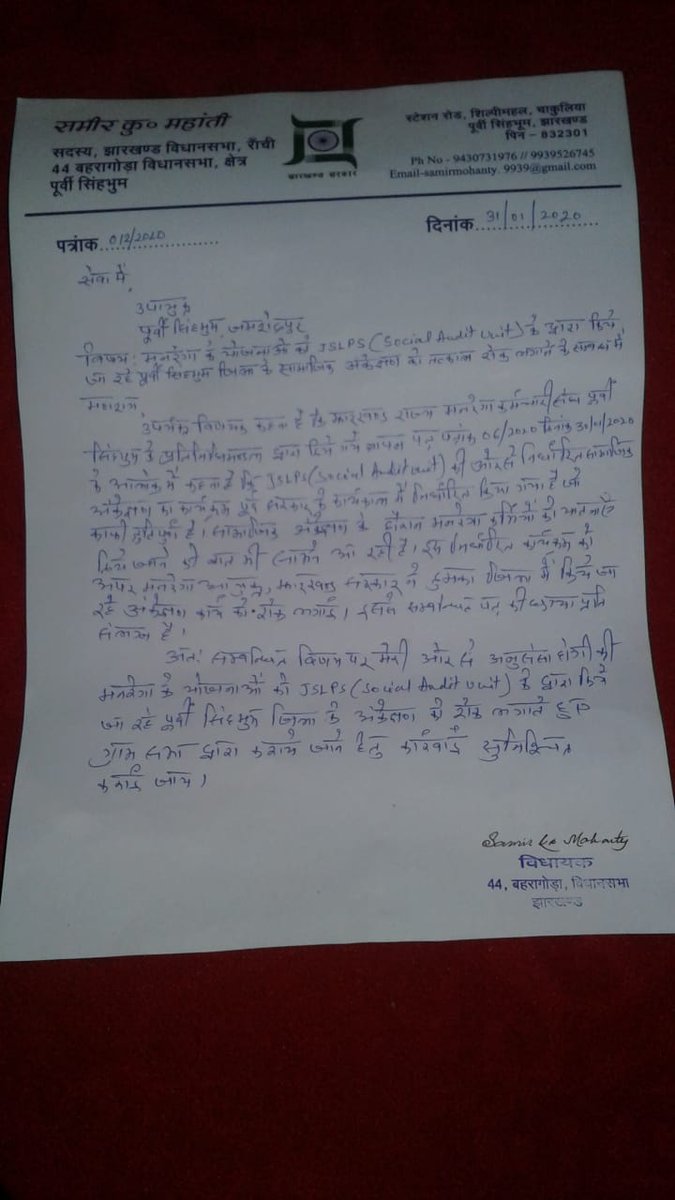 समीर कु० महांती
सदस्य, झारखण्ड विधानसभा, राँची
44 बहरागोड़ा विधानसभा, क्षेत्र
पूर्वी सिंहभुम
झारखण्ड सरकार
स्टेशन रोड, शिल्पीमहल, चाकुलिया
पूर्वी सिंहभूम, झारखण्ड
पिन – 832301
Ph No - 9430731976 // 9939526745
Email-samirmohanty. 9939@gmail.com
पत्रांक 012/2020
दिनांक 31/01/2020
सेवा में,
उपायुक्त
पूर्वी सिंहभुम, जमशेदपुर
विषय: मनरेगा के योजनाओं को JSLPS (Social Audit Unit) के द्वारा किये
जा रहे पूर्वी सिंहभुम जिला के सामाजिक अंकेक्षण को तत्काल रोक लगाने के सम्बन्ध में
महाशय,
उपर्युक्त विषयक कहना है कि झारखण्ड राज्य मनरेगा कर्मचारी संघ पूर्वी
सिंहभुम के प्रतिनिधिमंडल द्वारा दिये गये ज्ञापन पत्र पत्रांक 06/2020 दिनांक 30/01/2020
के आलोक में कहना है कि JSLPS (Social Audit Unit) की ओर से निर्धारित सामाजिक
अंकेक्षण का कार्यक्रम पूर्व सरकार के कार्यकाल में निर्धारित किया गया है जो
काफी त्रुटिपूर्ण है। सामाजिक अंकेक्षण के दौरान मनरेगा कर्मियों को
किये जाने की बात भी सामने आ रही है। इस निर्धारित कार्यक्रम को
अपर मनरेगा आयुक्त, झारखण्ड सरकार ने दुमका जिला में किये जा
रहे अंकेक्षण कार्य को रोक लगाई। इससे सम्बन्धित पत्र की छाया प्रति
संलग्न है।
अतः सम्बन्धित विषय पर मेरी ओर से अनुसंसा होगी की
मनरेगा के योजनाओं को JSLPS (Social Audit Unit) के द्वारा किये
जा रहे पूर्वी सिंहभुम जिला के अंकेक्षण को रोक लगाते हुए
ग्राम सभा द्वारा कराये जाने हेतु कारवाई सुनिश्चित
कराई जाय।
Samir Kr Mohanty
विधायक
44, बहरागोड़ा, विधानसभा
झारखण्ड